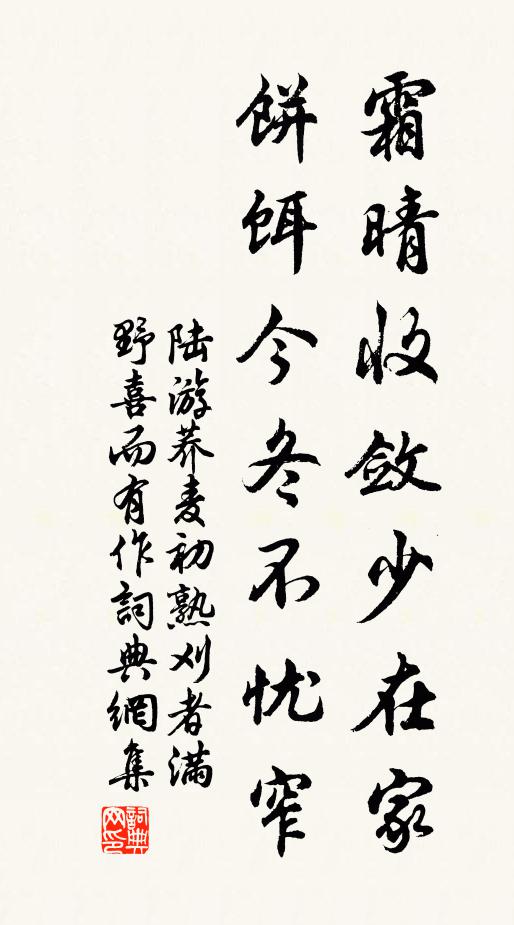 霜晴收敛少在家
餅餌今冬不忧窄
陆游荞麦初熟刈者满
野喜而有作詞典網集
詞典
网印